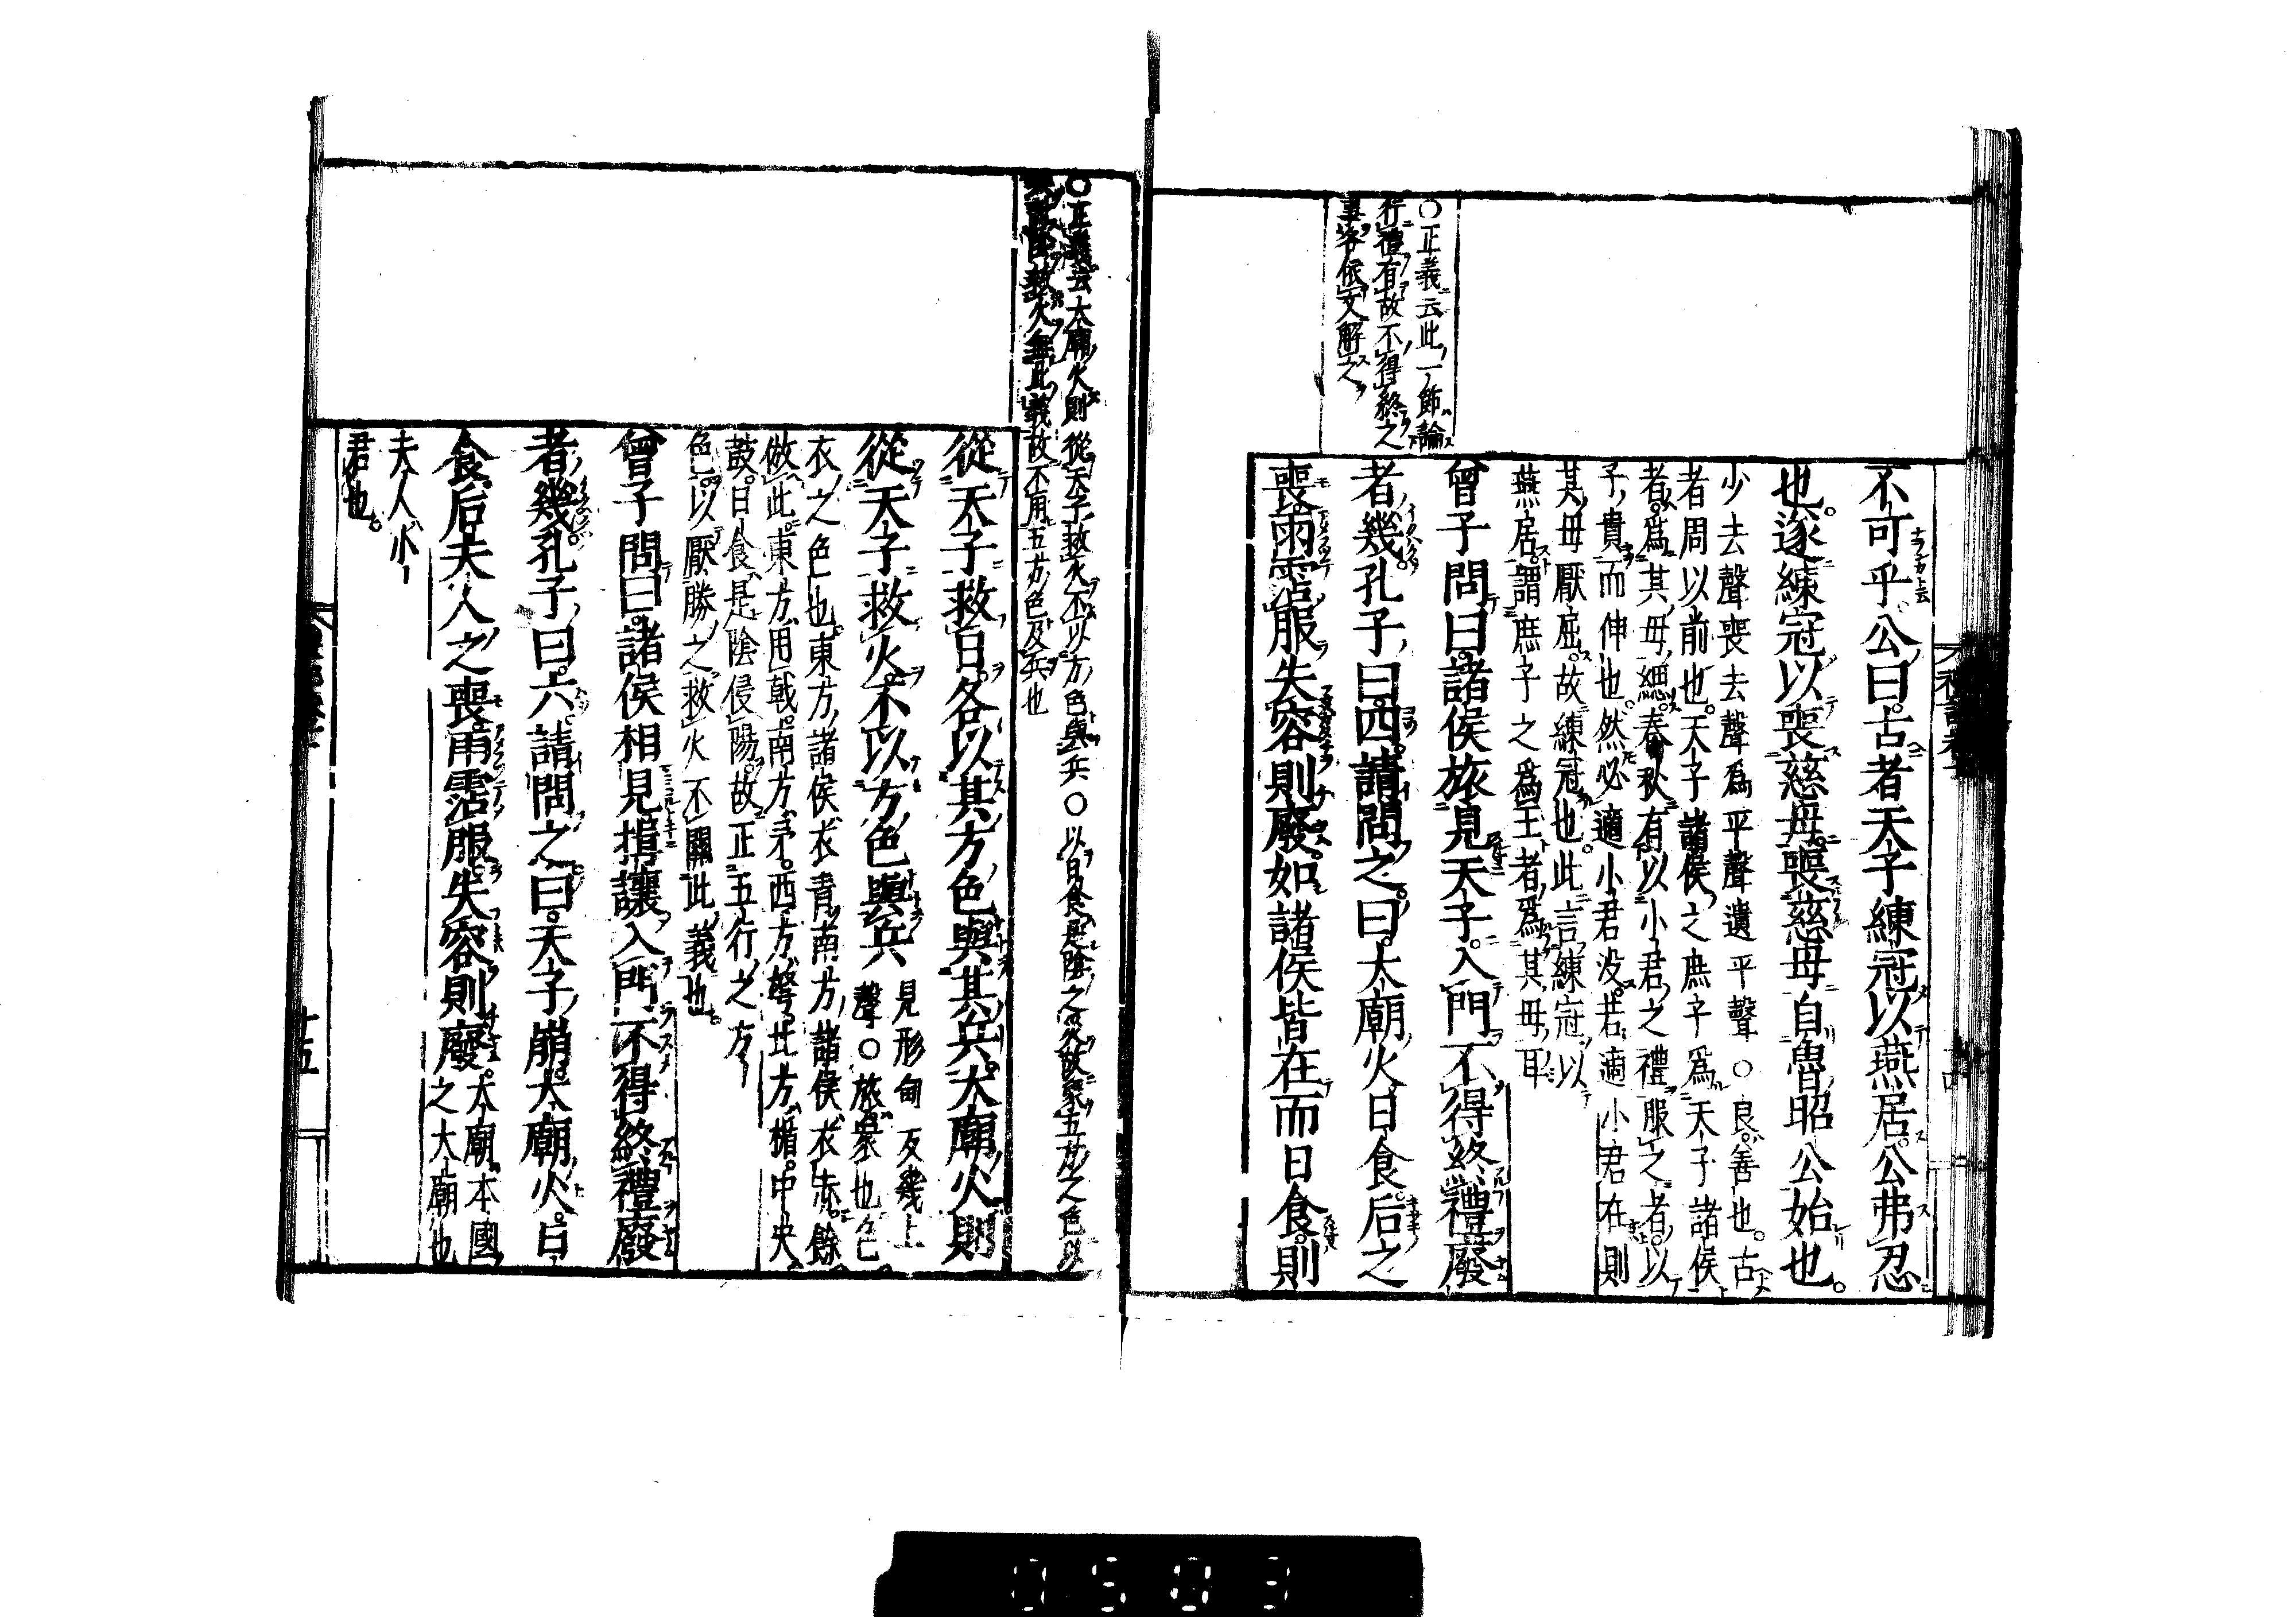 不可乎公曰古者天子練冠以燕居公弗忍
也遂練冠以喪慈母喪慈母自魯昭公始也
少去聲喪去聲爲平聲遺平聲○良善也古
者周以前也天子諸侯之庶子爲天子諸侯
者爲其母緦春秋有以小君之禮服之者以
子貴而伸也然必適小君没若適小君在則
其母厭屈故練冠也此言練冠以
燕居謂庶子之爲王者爲其母耳
曾子問曰諸侯旅見天子入門不得終禮廢
者幾孔子曰四請問之曰大廟火日食后之
喪雨霑服失容則廢如諸侯皆在而日食則
○正義云此一節論
行禮有故不得終之
事各依文解之
從天子救日各以其方色與其兵大廟火則
從天子救火不以方色與兵
見形甸反幾上
聲○旅衆也色
衣之色也東方諸侯衣青南方諸侯衣赤餘
倣此東方用戟南方矛西方弩北方楯中央
鼓日食是陰侵陽故正五行之方
色以厭勝之救火不關此義也
曾子問曰諸侯相見揖讓入門不得終禮廢
者幾孔子曰六請問之曰天子崩大廟火日
食后夫人之喪雨霑服失容則廢
大廟本國
之大廟也
夫人小
君也
○正義云大廟火則從天子救火不以方色與兵○以日食是陰之災故象五方之色以
救火無此義故不用五方色及兵也
十五